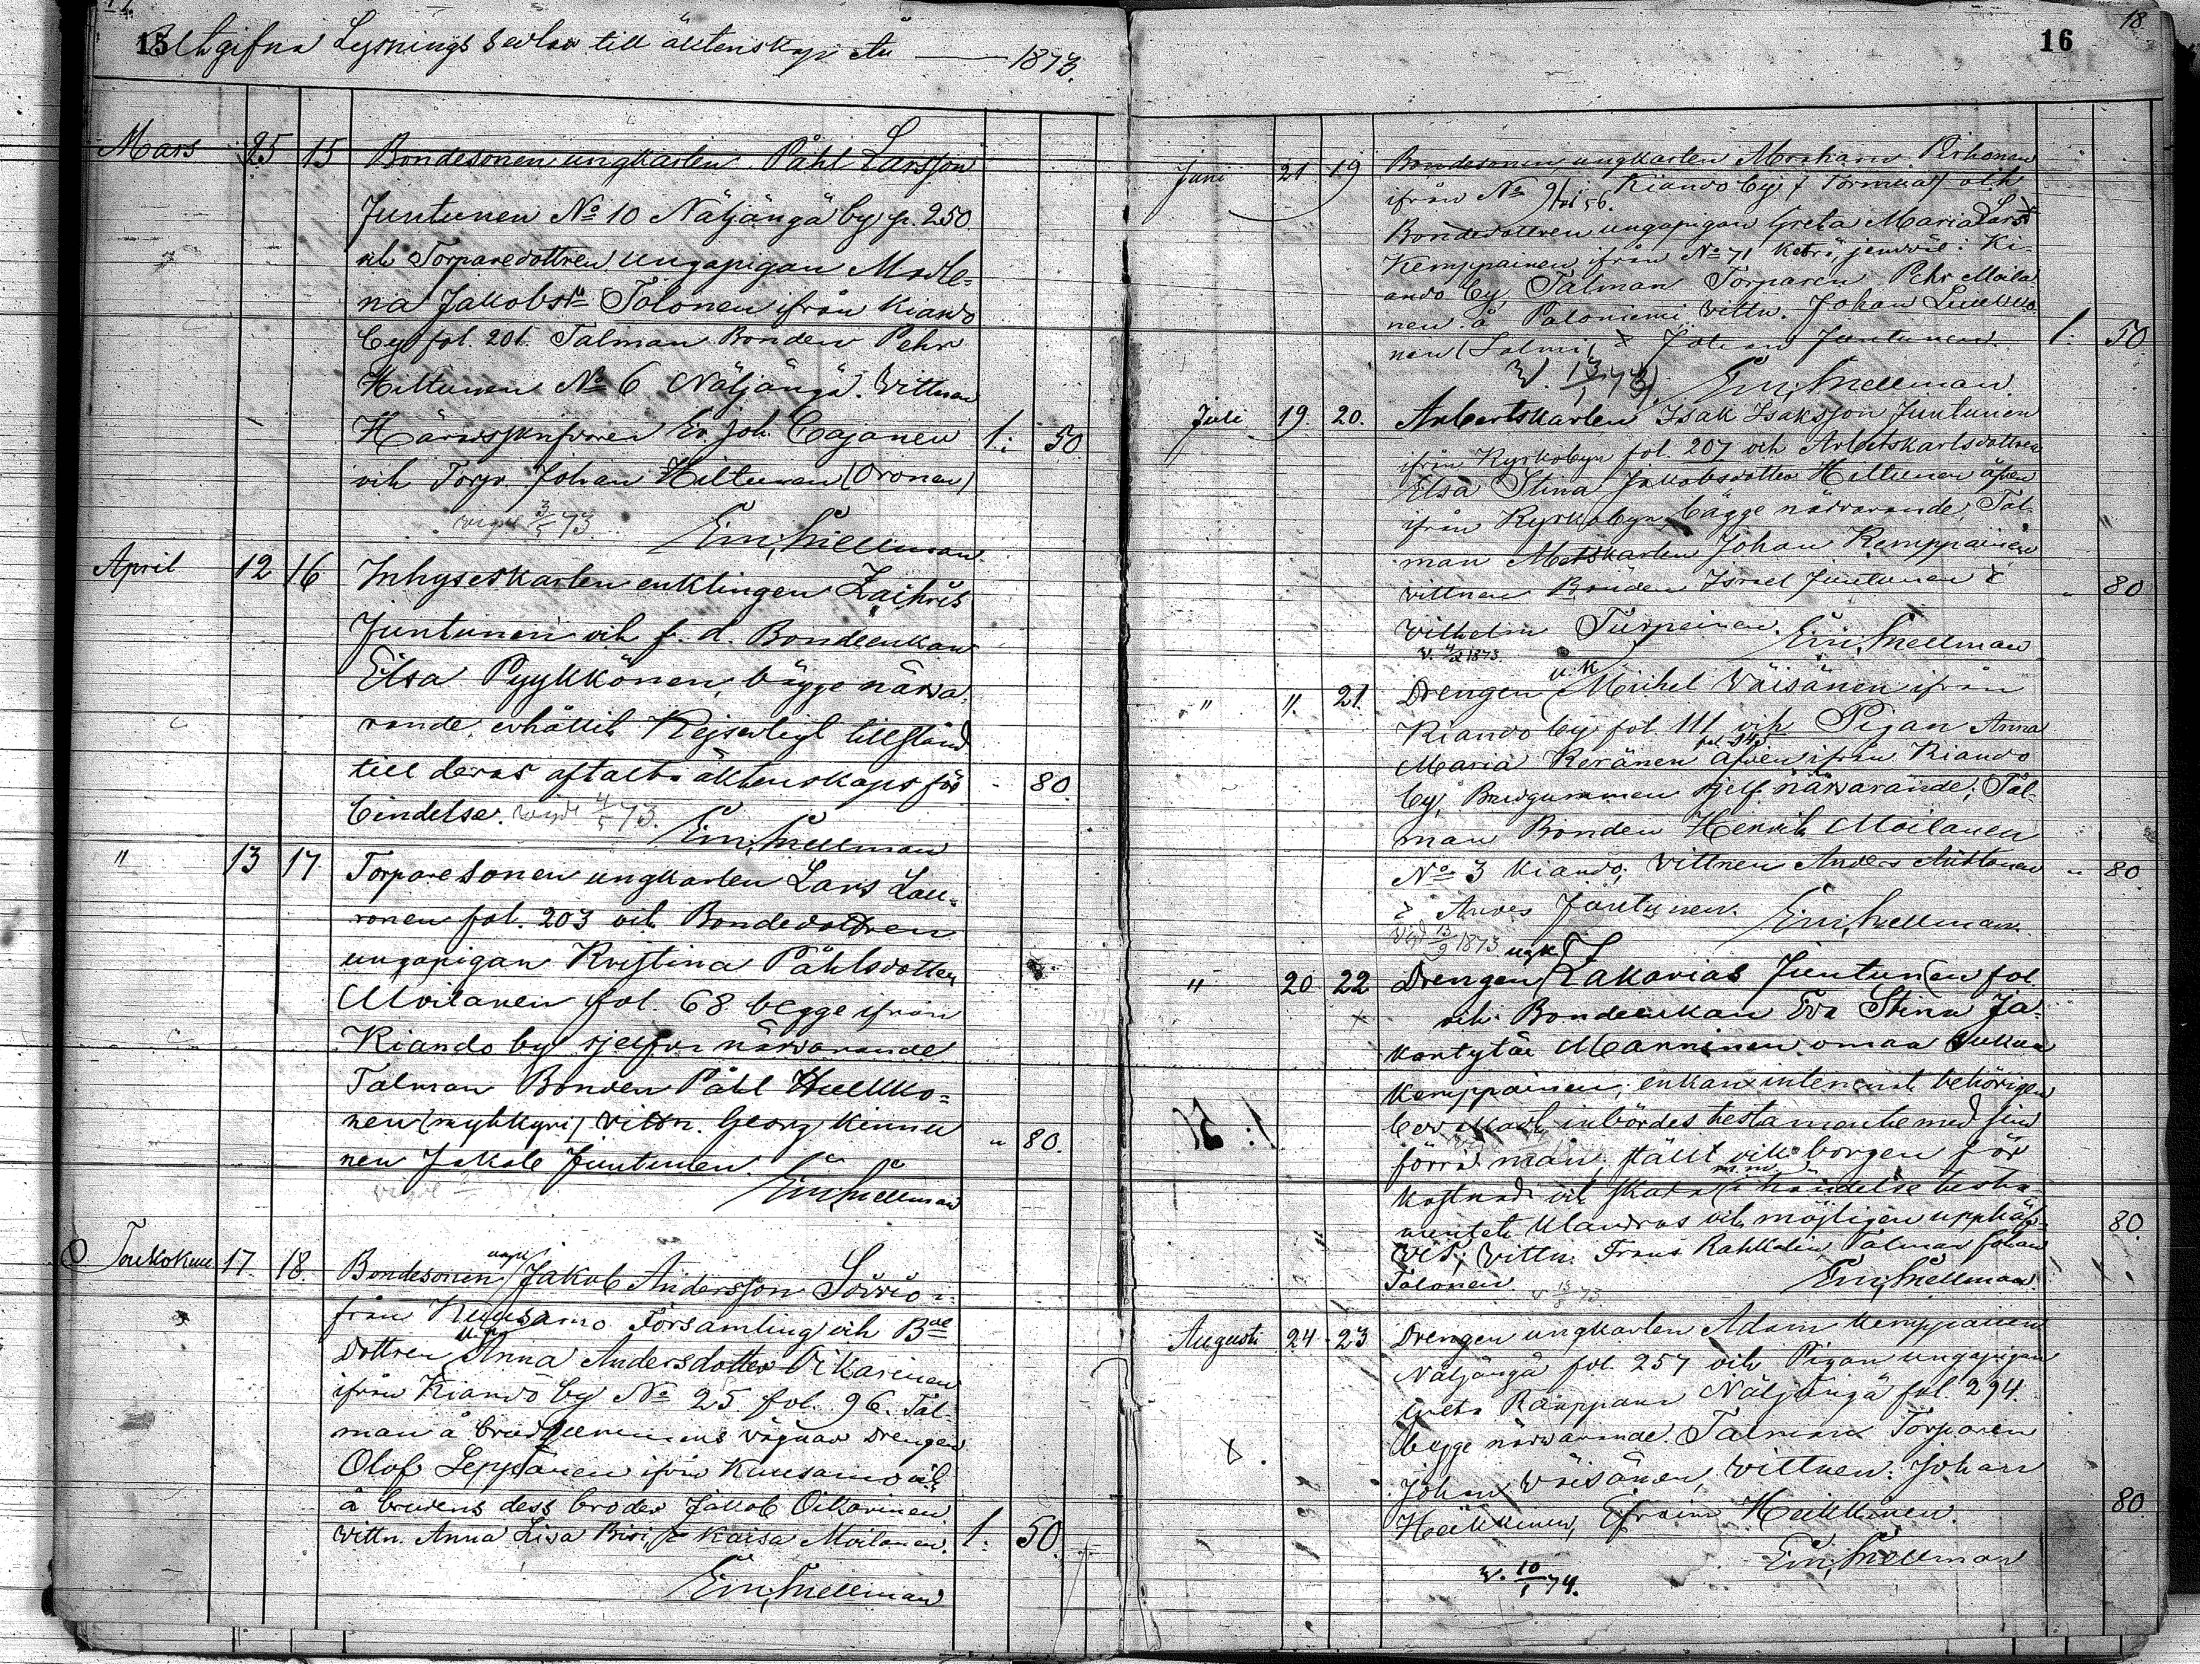 15 Utgifna Lysnings sedlar till äktenskap År 1873.
Mars 25 15 Bondesonen ungkarlen Påhl Larsson
Juntunen No 10 Näljängä by p. 250
och Torparedottren ungapigan Made-
na Jakobsdr Tolonen ifrån Kiando
by fol. 201. Talman Bonden Pehr
Hiltunen No 6 Näljängä. Vittnen
Häradsskrifvaren Joh. Cajanen 1: 50.
och Torp. Johan Hiltunen (Oronen)
vigd 3/5 73. Em. Snellman
April 12 16 Inhyseskarlen enklingen Zachris
Juntunen och f. d. Bondeenkan
Elsa Pyykkönen, bägge närva-
rande, erhållit Kejserligt tillstånd
till deras aftalta äktenskaps för " 80.
bindelse. vigde 4/5 73. Em. Snellman
" 13 17 Torparesonen ungkarlen Lars Lau-
ronen fol. 203 och Bondedottren
ungapigan Kristina Påhlsdotter
Moilanen fol. 68 begge ifrån
Kiando by sjelfva närvarande
Talman Bonden Påhl Hulkko-
nen (mykkyri) vittn. Georg Kinnu
nen Jakob Juntunen. " 80.
Em. Snellman
Toukokuu 17. 18. Bondesonen ungk. Jakob Andersson Särviö
från Kuusamo Församling och Bde
Dottren u.p. Anna Andersdotter Oikarinen
ifrån Kiando by No 25 fol. 96. Tal-
man å brudgummens vägnar Drengen
Olof Leppänen ifrån Kuusamo och
å brudens dess broder Jakob Oikarinen
vittn. Anna Lisa & Kaisa Moilanen. 1: 50.
Em. Snellman
16
18
Juni 21 19 Bondesonen ungkarlen Abraham Pirhonen
ifrån No 9 fol 56. Kiando by, Tormua och
Bondedottren ungapigan Greta Maria Larsd
Kemppainen ifrån No 71 i Ki-
ando by, Talman Torparen Pehr Moila
nen å Paloniemi vittn. Johan Luukko
nen (Salmi) & Johan Juntunen. 1: 50
W. 13/1 73). Em. Snellman
Juli 19. 20. Arbetskarlen Isak Isaksson Juntunen
ifrån Kyrkobyn fol. 207 och Arbetskarlsdottren
Elsa Stina Jakobsdotter Hiltunen äfven
ifrån Kyrkobyn, bägge närvarande, Tal-
man Johan Kemppainen
vittnen Bonden Israel Juntunen & " 80
Wilhelm Turpeinen. Em. Snellman
1873.
" ". 21. Drengen u.k. Michel Väisänen ifrån
Kiando by fol. 111 och Pigan Anna
Maria Keränen äfven ifrån Kiando
by, Brudgummen sjelf närvarande; Tal-
man Bonden Henrik Moilanen
No 3 Kiando; Vittnen Anders " 80
& Anders Juntunen. Em. Snellman
Vigd 13/9 1873
" 20 22 Drengen ungk. Zakarias Juntunen fol.
och Bondeenkan Eva Stina Ja-
kontytär Manninen omaa
Kemppainen; enkan intecknat behörigen
bevakadt inbördes testamente med sin
förra man, ställt ock borgen för
kostnad och skada m.m. i händelse testa
mentet klandras och möjligen upphäf- 80.
ves; Vittn. Frans Rahkolin, Talman Johan
Tolonen. Em. Snellman
Augusti 24 23 Drengen ungkarlen Adam Kemppainen
Näljängä fol. 257 och Pigan ungapigan
Greta Näljängä fol. 294
begge närvarande. Talman Torparen
Johan Väisänen, Vittnen: Johan
Heikkinen, Efraim Heikkinen. 80.
Em. Snellman
W. 10/1 74.